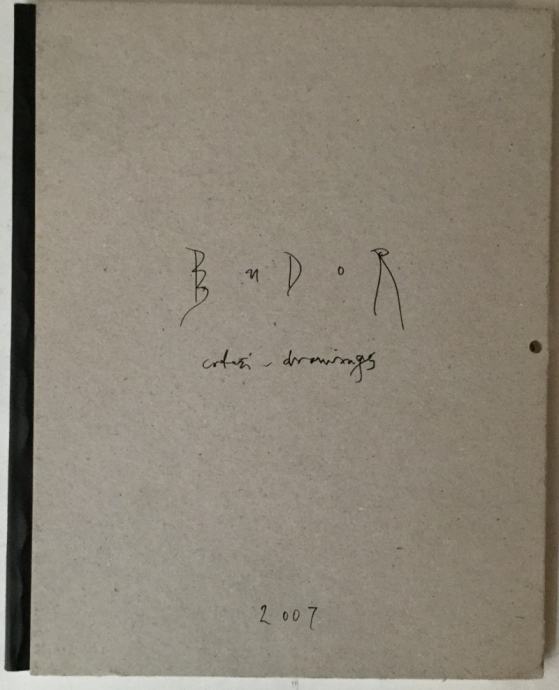 BuDoR
crteži - drawings
2007